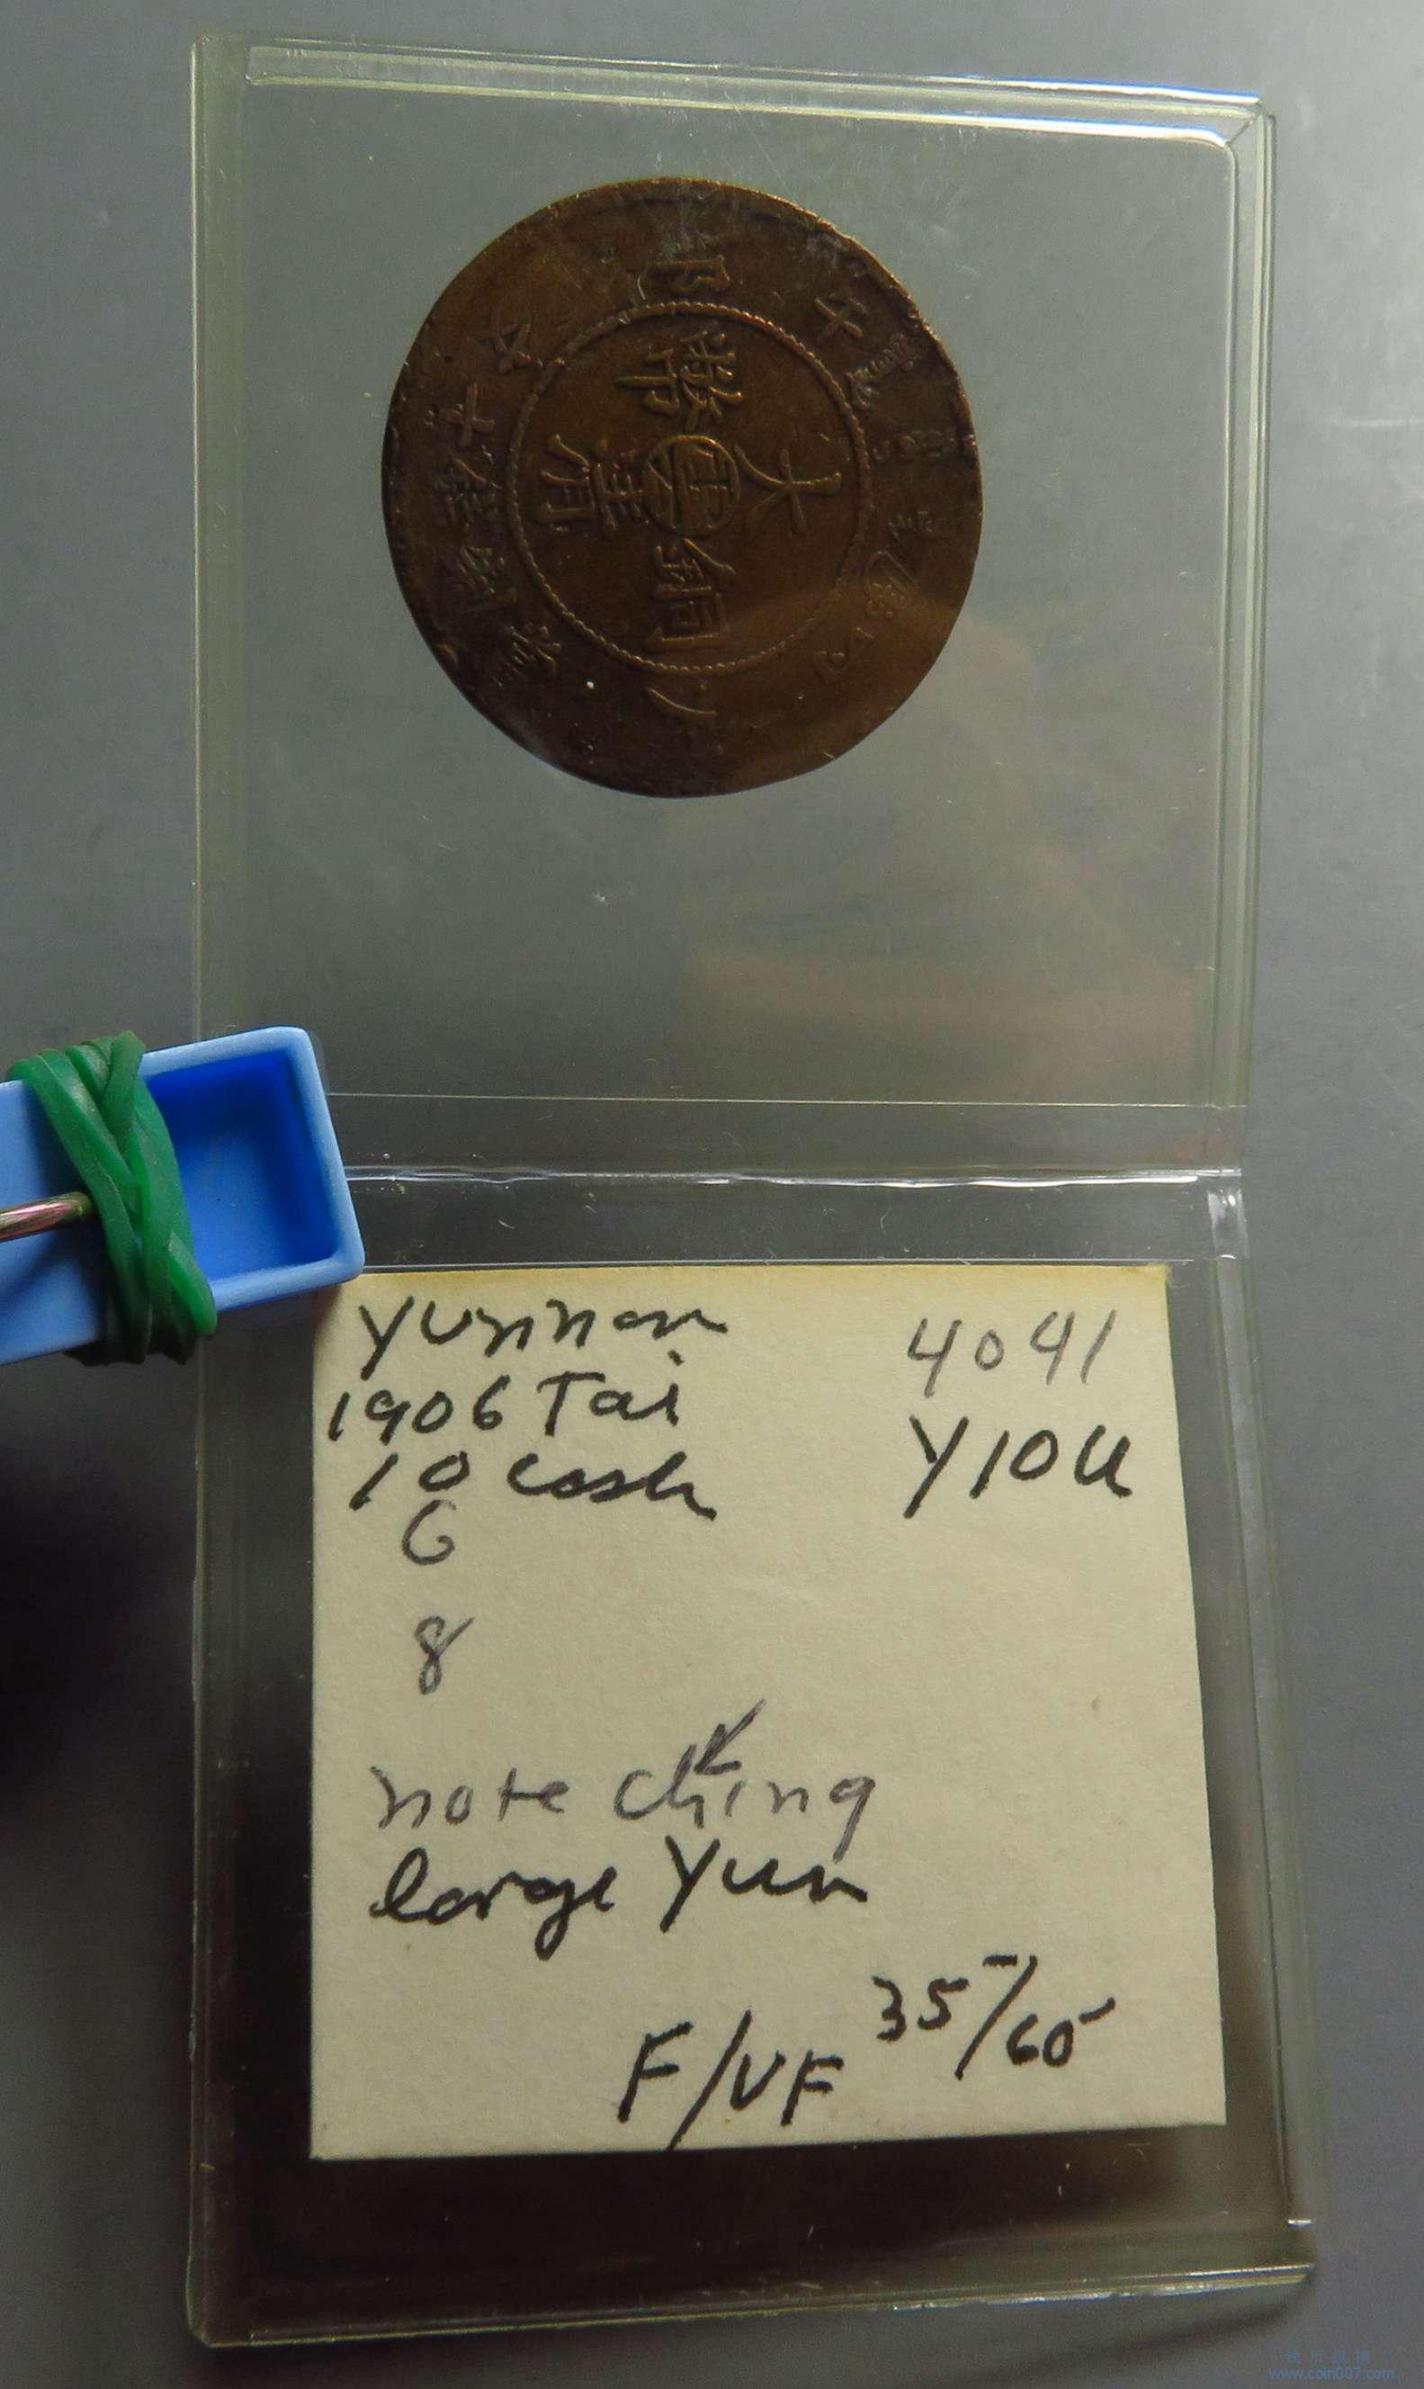 大清銅幣
雲
戶
部
午
丙
當制錢十文
Yunnan
1906 Tai
10 Cash
G
8
4041
Y10u
note ching
large Yun
F/VF 35/60
www.coin007.com